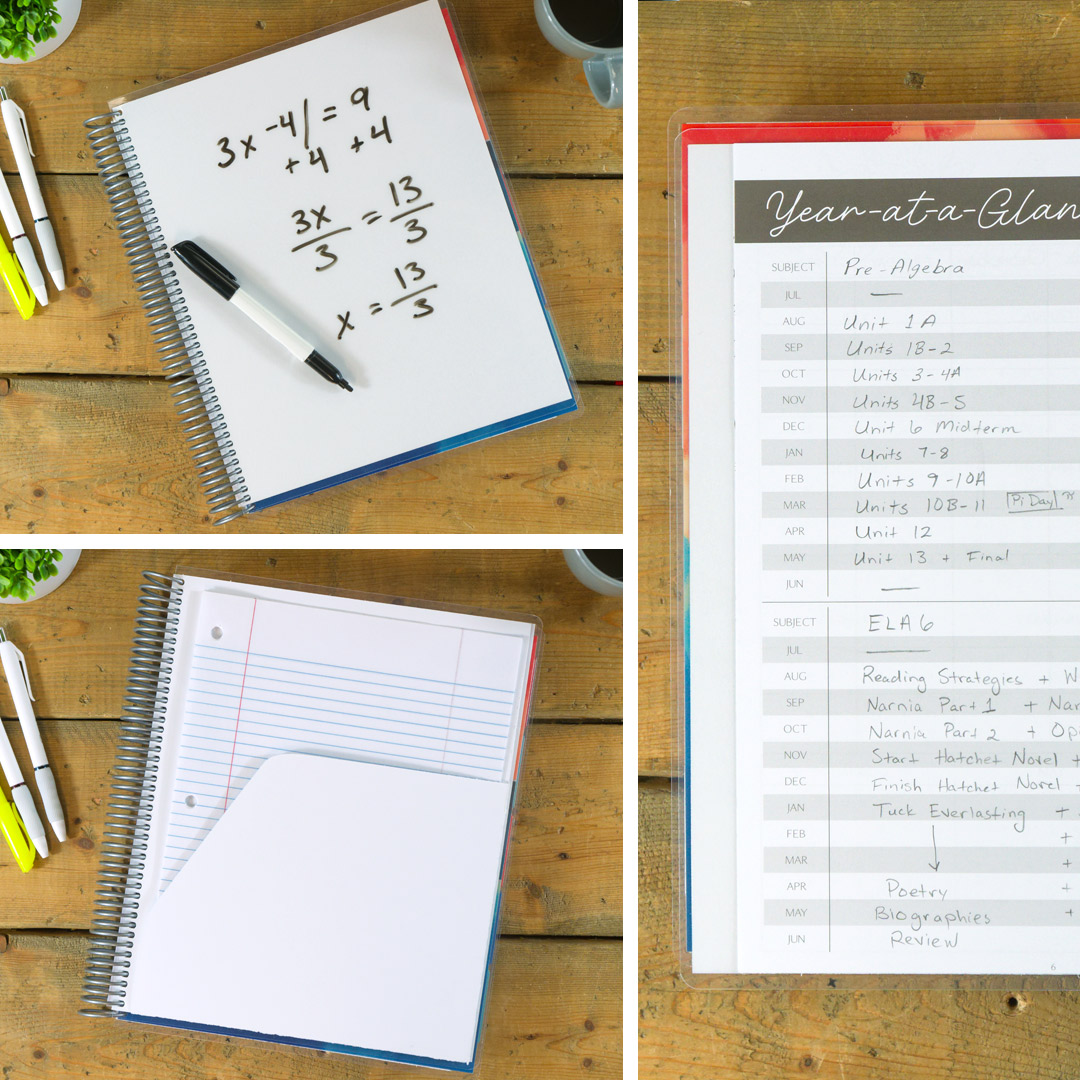 3x -4 = 9
+4 +4
3x/3 = 13/3
x = 13/3
Year-at-a-Glan
SUBJECT Pre-Algebra
JUL —
AUG Unit 1A
SEP Units 1B-2
OCT Units 3-4A
NOV Units 4B-5
DEC Unit 6 Midterm
JAN Units 7-8
FEB Units 9-10A
MAR Units 10B-11 Pi Day π
APR Unit 12
MAY Unit 13 + Final
JUN —
SUBJECT ELA 6
JUL —
AUG Reading Strategies + W
SEP Narnia Part 1 + Nar
OCT Narnia Part 2 + Op
NOV Start Hatchet Novel +
DEC Finish Hatchet Novel +
JAN Tuck Everlasting +
FEB +
MAR +
APR Poetry +
MAY Biographies +
JUN Review
6